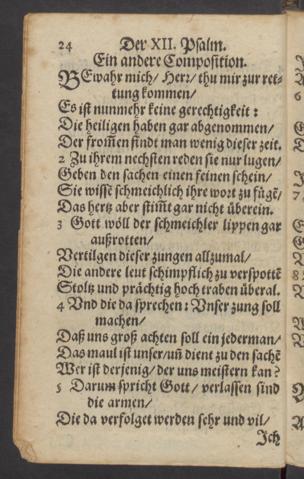 24 Der XII. Psalm.
Ein andere Composition.
BEwahr mich / Herr / thu mir zur ret-
tung kommen /
Es ist nunmehr keine gerechtigkeit :
Die heiligen haben gar abgenommen /
Der from̃en findt man wenig dieser zeit.
2 Zu ihrem nechsten reden sie nur lugen /
Geben den sachen einen feinen schein /
Sie wissẽ schmeichlich ihre wort zu fügẽ /
Das hertz aber stim̃t gar nicht überein.
3 Gott wöll der schmeichler lippen gar
außrotten /
Vertilgen dieser zungen allzumal /
Die andere leut schimpflich zu verspottẽ
Stoltz und prächtig hoch traben überal.
4 Und die da sprechen : Unser zung soll
machen /
Daß uns groß achten soll ein jederman /
Das maul ist unser / uñ dient zu den sachẽ
Wer ist derjenig / der uns meistern kan ?
5 Darum spricht Gott / verlassen sind
die armen /
Die da verfolget werden sehr und vil /
Ich